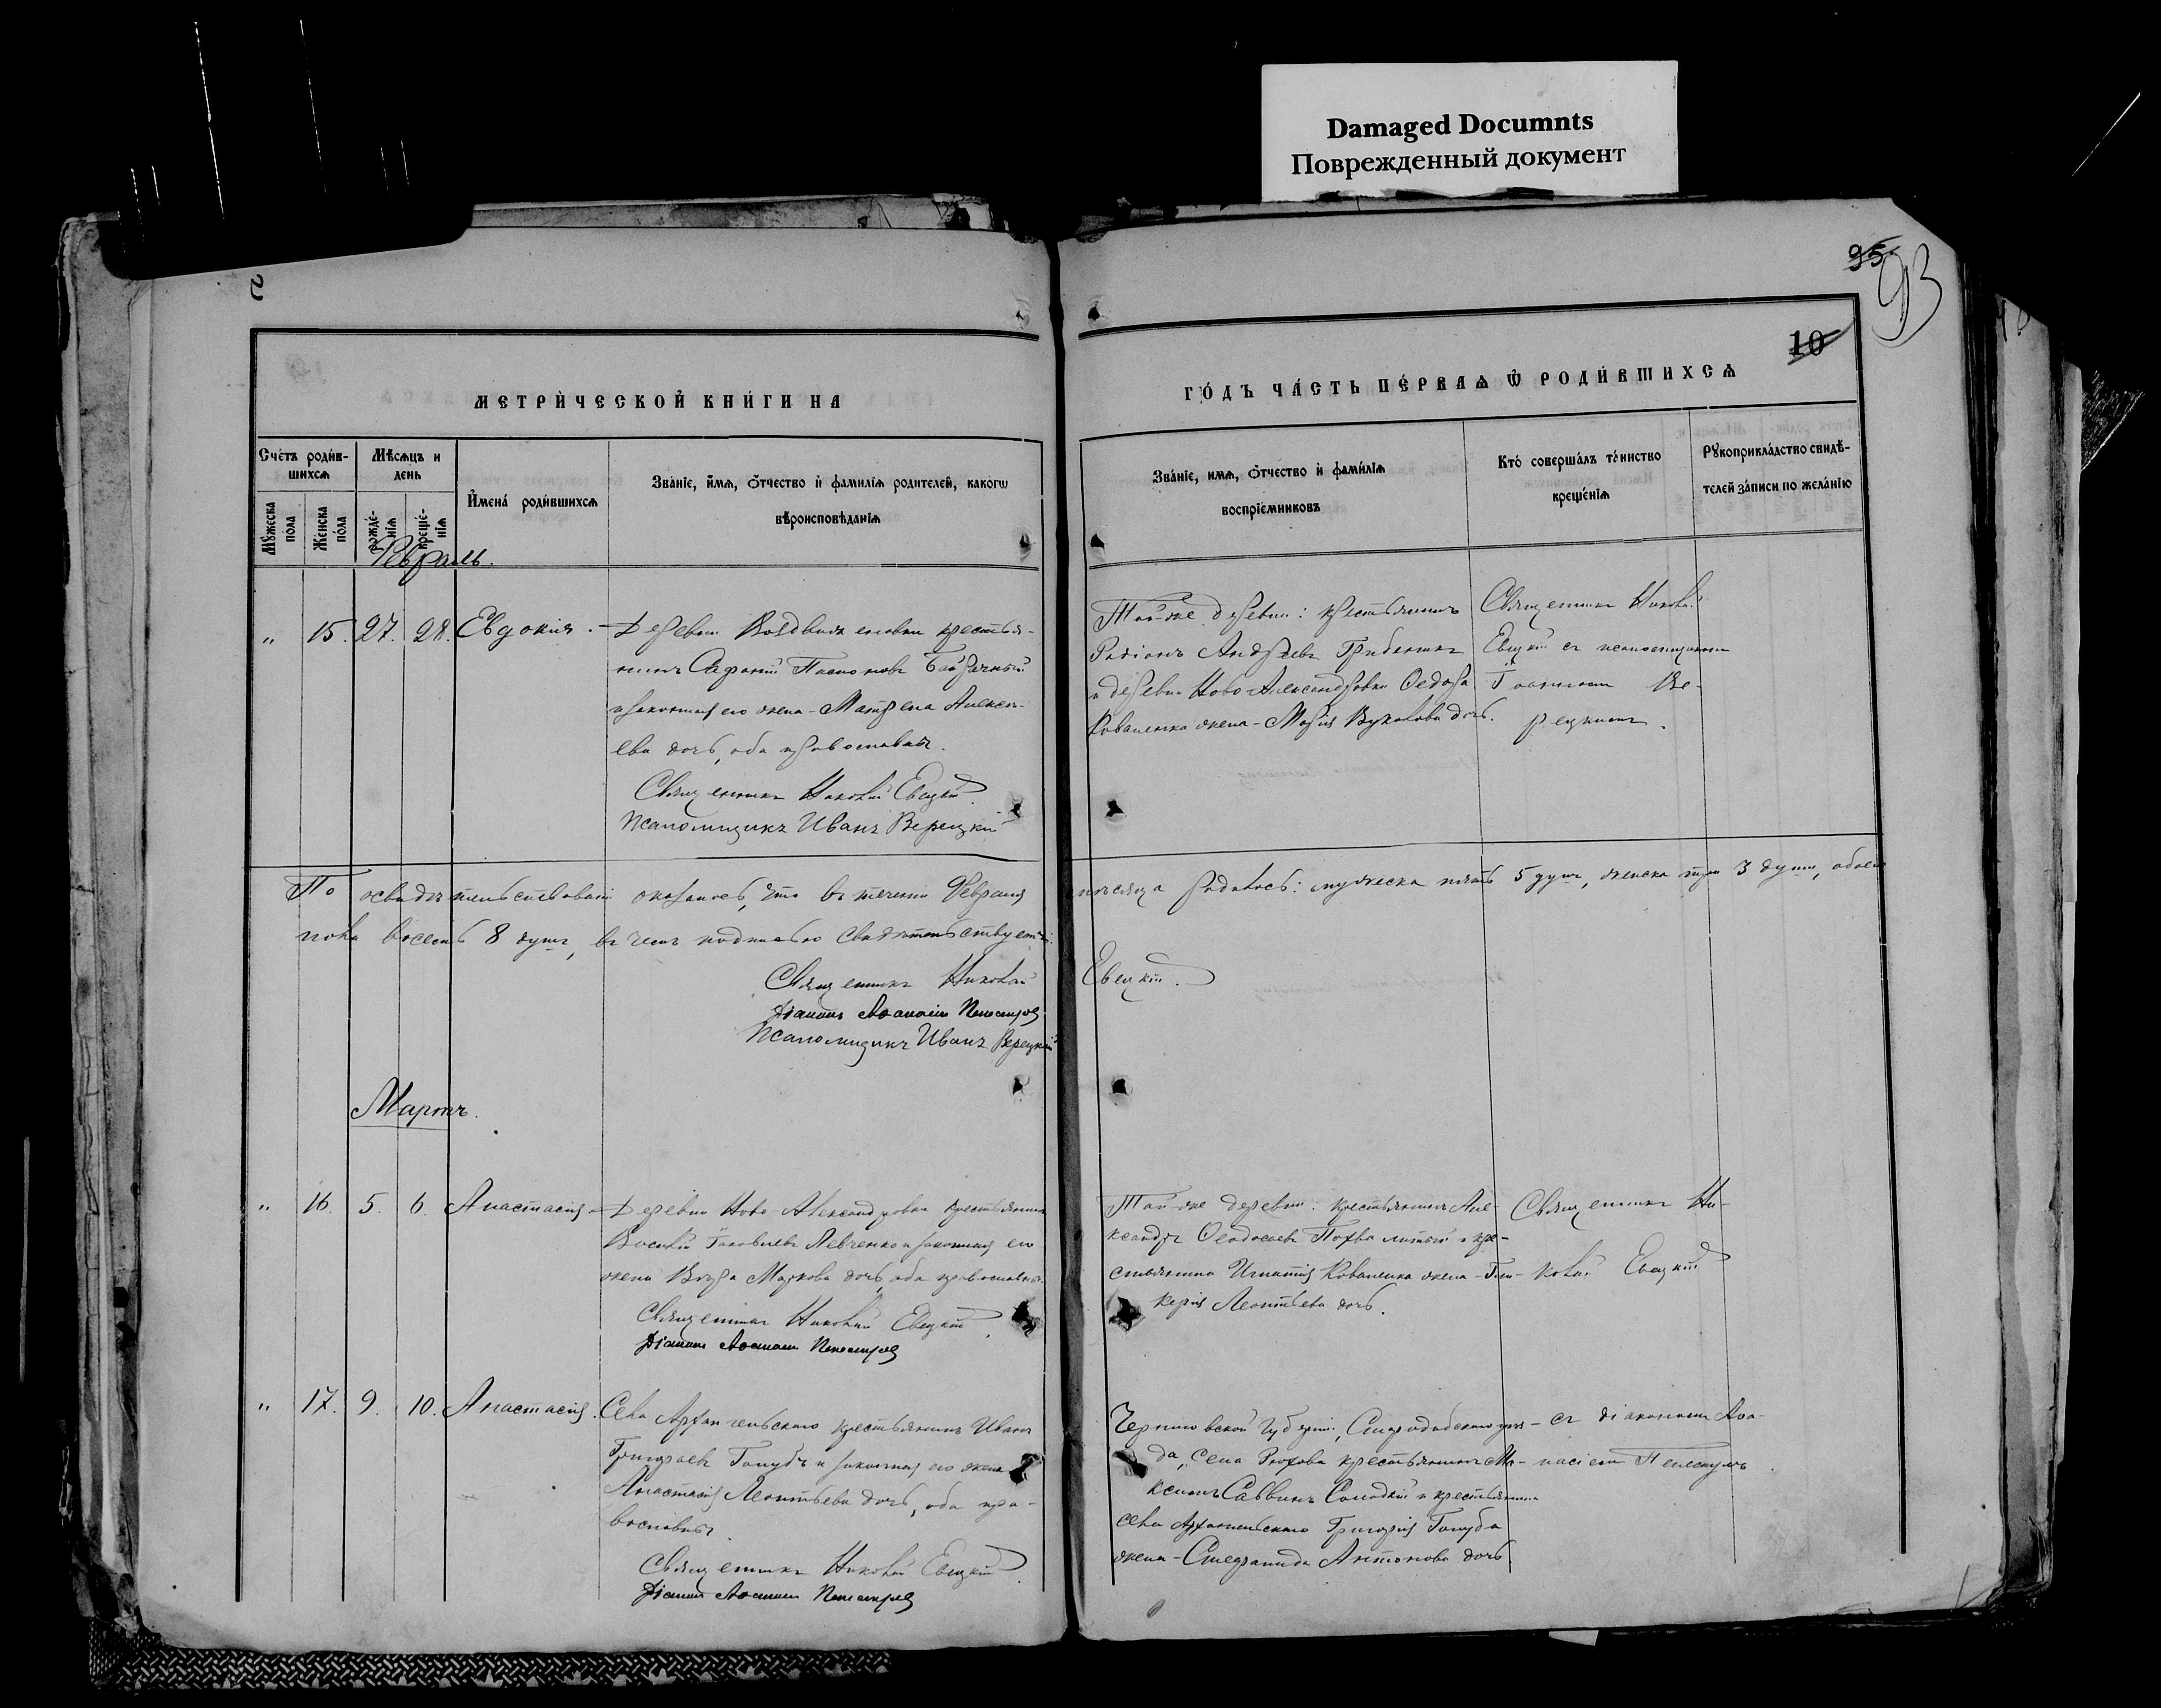 Damaged Documnts
Поврежденный документ
95
93
10
МЕТРИ́ЧЕСКОЙ КНИ́ГИ НА
ГО́ДЪ ЧА́СТЬ ПЕ́РВАѦ Ѿ РОДИ́ВШИХСѦ
Сче́тъ роди́в-
шихсѧ
Мѣсѧцъ и
день
Мꙋжеска
пола
Женска
по́ла
рожде́-
нїѧ
креще́-
нїѧ
И҆мена́ роди́вшихсѧ
Зва́нїе, и҆́мѧ, ѻ҆́тчество и҆ фамилїѧ родителей, како́гѡ
вѣроисповѣданїѧ
Зва́нїе, имѧ, ѻ҆́тчество и҆ фами́лїѧ
воспрїе́мниковъ
Кто̀ соверша́лъ та́инство
креще́нїѧ
Рꙋкоприкла́дство свидѣ́-
телей за́писи по жела́нїю
Февраль.
„ 15. 27. 28. Евдокія.
Деревни Воздвиженовки крестья-
нинъ
и законная его жена - Матрена Алексе-
ева дочь, оба православные.
Священникъ Николай Евецкій.
Псаломщикъ Иванъ Верецкій
Той-же деревни: крестьянинъ
Родіонъ Андреевъ Грибенникъ
и деревни Ново Александровки Федора
Коваленка жена - Марія дочь.
Священникъ Николай
Евецкій съ псаломщикомъ
Іоанномъ Ве-
рецкимъ.
По освидетельствованіи оказалось, что въ теченіи Февраля
месяца родилось: мужеска пять 5 душъ, женска три 3 души, обоего
пола восемь 8 душъ, въ чемъ подписью свидетельствуемъ:
Священникъ Николай
Евецкій.
Діаконъ Афанасій
Псаломщикъ Иванъ Верецкій
Мартъ.
„ 16. 5. 6. Анастасія.
Деревни Ново-Александровки крестьянинъ
Василій Яковлевъ Левченко и законная его
жена Маркова дочь, оба православные.
Священникъ Николай Евецкій.
Діаконъ Афанасій
Той-же деревни: крестьянинъ Але-
ксандръ Феодосіевъ и кре-
стьянина Игнатія Коваленка жена - Гли-
керія Леонтьева дочь.
Священникъ Ни-
колай Евецкій
„ 17. 9. 10. Анастасія.
Села Архангельскаго крестьянинъ Иванъ
Григорьевъ Голубъ и законная его жена
Анастасія Леонтьева дочь, оба пра-
вославные.
Священникъ Николай Евецкій.
Діаконъ Афанасій
Черниговской Губерніи, Стародубскаго уез-
да, села Рюхова крестьянинъ Ма-
ксимъ Саввинъ Солодкій и крестьянина
села Архангельскаго Григорія Голуба
жена - Стефанида Антонова дочь.
съ діакономъ Афа-
насіемъ